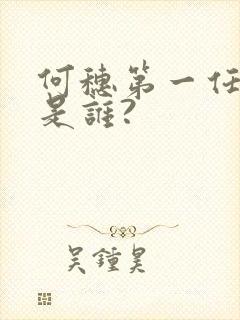 何穗第一任
是誰?
吴鍾昊